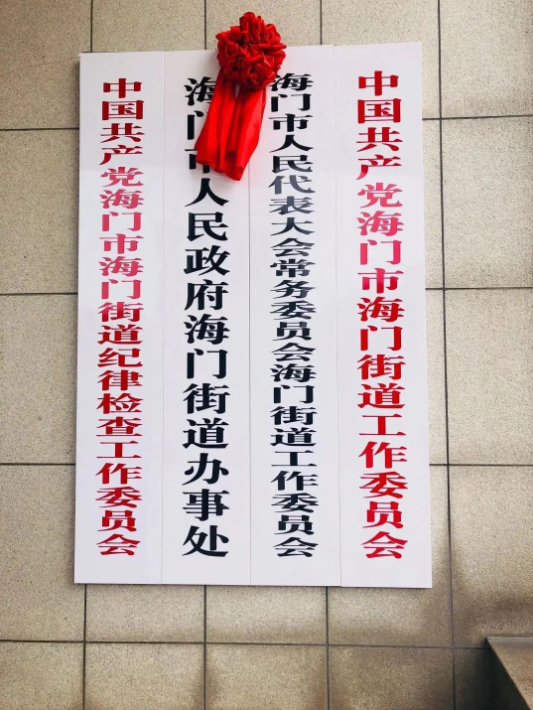 中国共产党海门市海门街道工作委员会
海门市人民代表大会常务委员会海门街道工作委员会
海门市人民政府海门街道办事处
中国共产党海门市海门街道纪律检查工作委员会